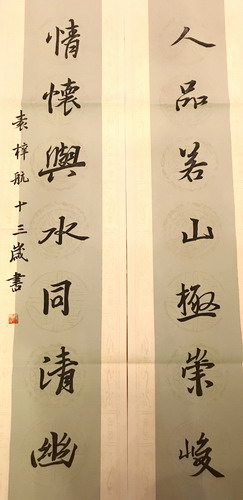 人品若山極崇峻
情懷與水同清幽
袁梓航十三歲書